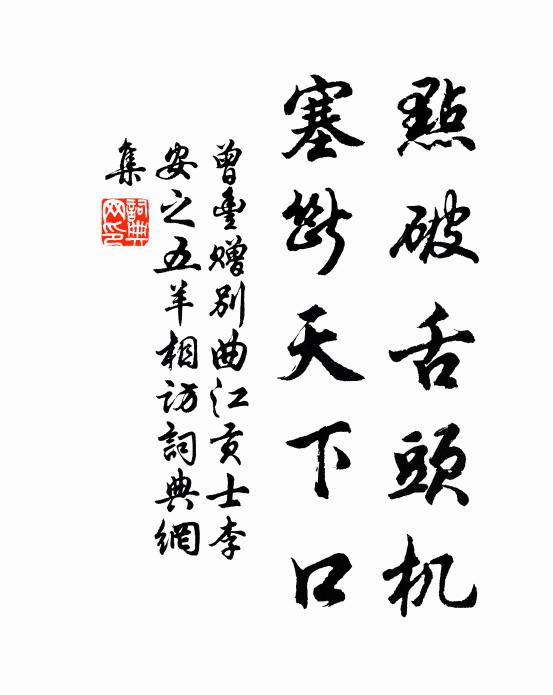 點破舌頭机
塞断天下口
曾豊贈別曲江贡士李
安之五羊相访詞典網
集
詞典
网印